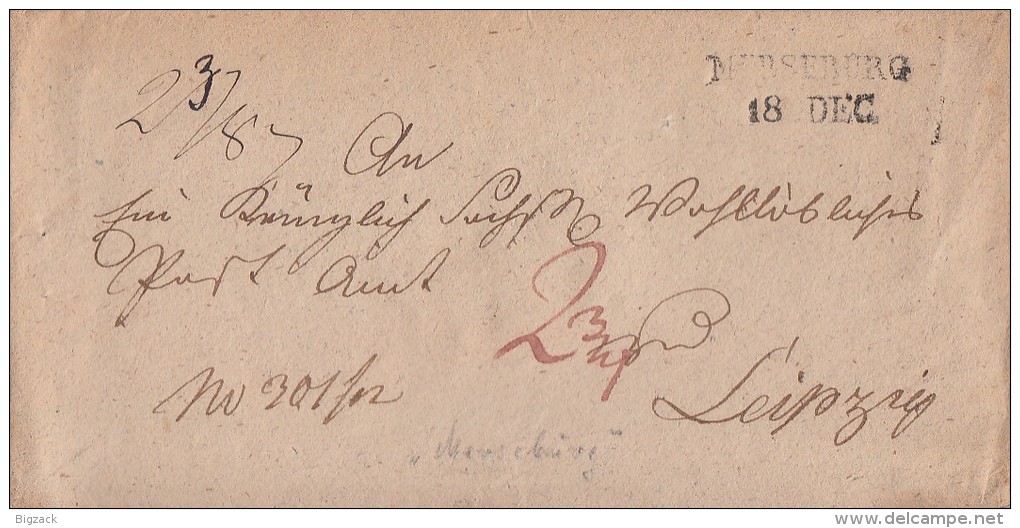 MERSEBURG
18 DEC
An
Ein Königlich Sächß Wohllöbliches
Post Amt
2 3/4
Leipzig
No 301/12
„Merseburg"
Bigzack
www.delcampe.net